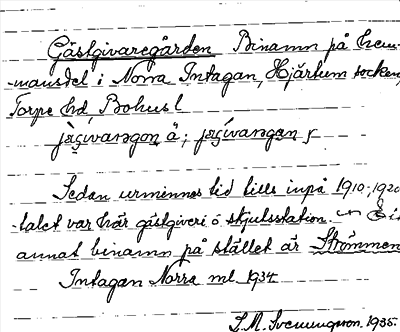 Gästgivaregården Binamn på hem-
-mansdel i Norra Intagan, Hjärtum socken,
Torpe hd, Bohusl
Sedan urminnes tid tills inpå 1910-, 1920
-talet var här gästgiveri o skjutsstation.
annat binamn på stället är Strömmen
Intagan Norra ml. 1934
S.M. Svenungson. 1935.